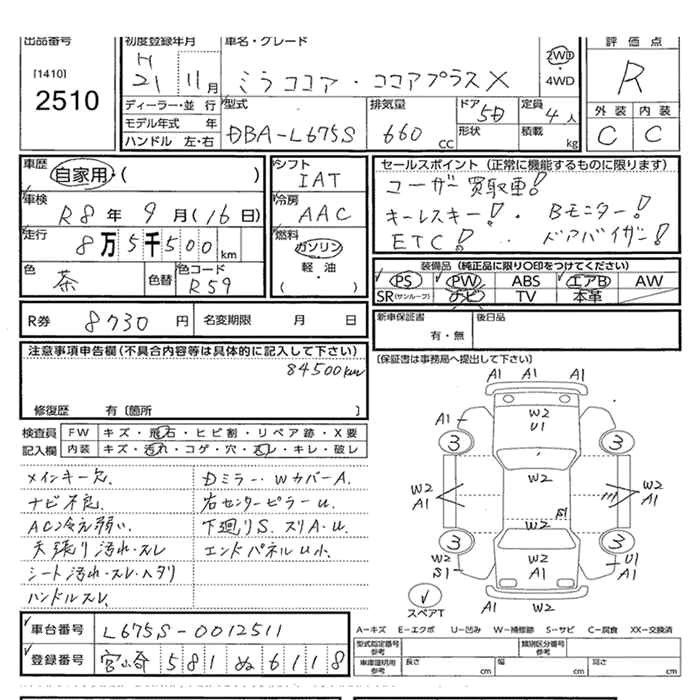 出品番号
[1410]
2510
初度登録年月
H
21 11月
車名・グレード
ミラココア・ココアプラスX
2WD
・
4WD
評価点
R
外装 内装
C C
ディーラー・並行
モデル年式 年
ハンドル 左・右
型式
DBA-L675S
排気量
660 cc
ドア 5D
形状
定員 4人
積載 kg
車歴
自家用・( )
車検
R8年 9月(16日)
走行
8万5千500km
色 茶
色替
色コード
R59
シフト
IAT
冷房
AAC
燃料
ガソリン
軽・油
( )
セールスポイント (正常に機能するものに限ります)
ユーザー買取車!
キーレスキー!・Bモニター!
ETC!・ドアバイザー!
装備品 (純正品に限り○印をつけてください)
PS PW ABS エアB AW
SR(サンルーフ) ナビ TV 本革
新車保証書
有・無
後日品
R券 8730円
名変期限 月 日
[保証書は事務局へ提出して下さい]
注意事項申告欄(不具合内容等は具体的に記入して下さい)
84500km
修復歴 有〔箇所 〕
検査員
記入欄
FW キズ・飛石・ヒビ割・リペア跡・X要
内装 キズ・汚れ・コゲ・穴・スレ・キレ・破レ
メインキー欠.
ナビ不良.
AC冷え弱い.
天張り汚れ・スレ
シート汚れ・スレ・ヘタリ
ハンドルスレ.
Dミラー・WカバーA.
右センターピラーU.
下廻りS. スリA・U.
エンドパネルU小.
A1 A1 A1
A1 W2 U1
3 3
W2 A1 W2 W2 A1
S1
W2
3 3
W2 S1 W2 A1 U1 A1
スペアT
A1 W2 A1
車台番号 L675S-0012511
登録番号 宮崎 581 ぬ 6118
A-キズ E-エクボ U-凹み W-補修跡 S-サビ C-腐食 XX-交換済
型式指定番号
参考
類別区分番号
参考
車庫証明用
参考
長さ cm 幅 cm 高さ cm